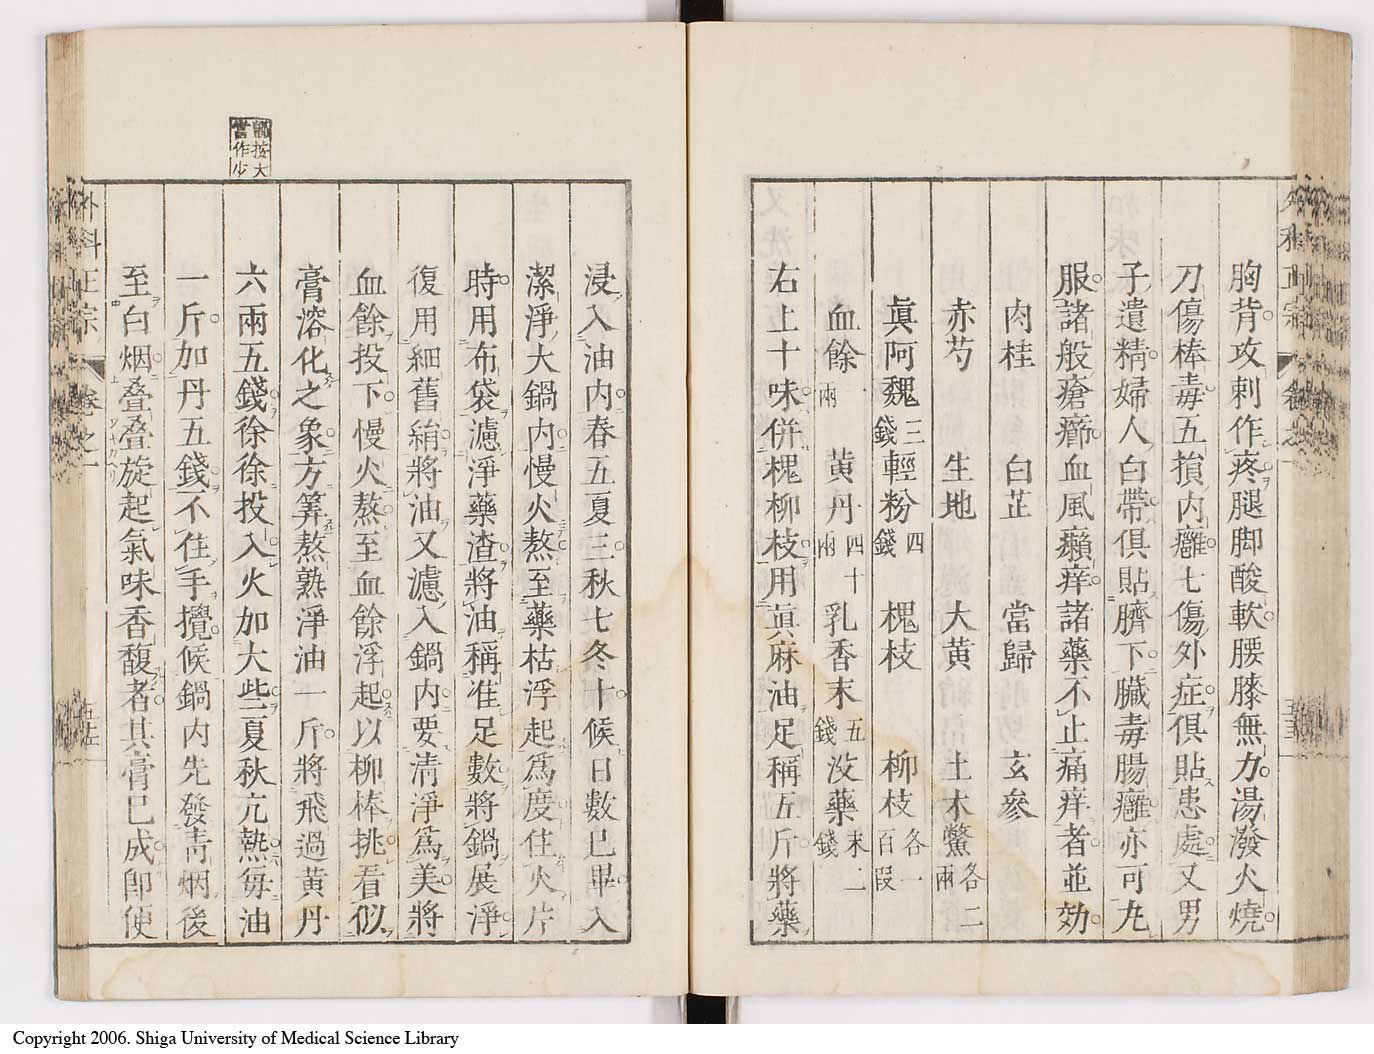 胸背攻刺作疼腿脚酸軟腰膝無力湯潑火燒
刀傷棒毒五損内癰七傷外症俱貼患處又男
子遺精婦人白帶俱貼臍下臟毒腸癰亦可丸
服諸般瘡癤血風癩痒諸藥不止痛痒者並効
肉桂 白芷 當歸 玄參
赤芍 生地 大黄 土木鱉各二兩
眞阿魏三錢 輕粉四錢 槐枝 柳枝各一百叚
血餘一兩 黄丹四十兩 乳香末五錢 没藥末二錢
右上十味併槐柳枝用眞麻油足稱五斤將藥
浸入油内春五夏三秋七冬十候日數已畢入
潔淨大鍋内慢火熬至藥枯浮起爲度住火片
時用布袋濾淨藥渣將油稱准足數將鍋展淨
復用細舊絹將油又濾入鍋内要清淨爲美將
血餘投下慢火熬至血餘浮起以柳棒挑看似
膏溶化之象方筭熬熟淨油一斤將飛過黄丹
六兩五錢徐徐投入火加大些夏秋亢熱毎油
一斤加丹五錢不住手攪候鍋内先發青烟後
至白烟叠叠旋起氣味香馥者其膏已成即便
按大
當作少
外科正宗 卷之一